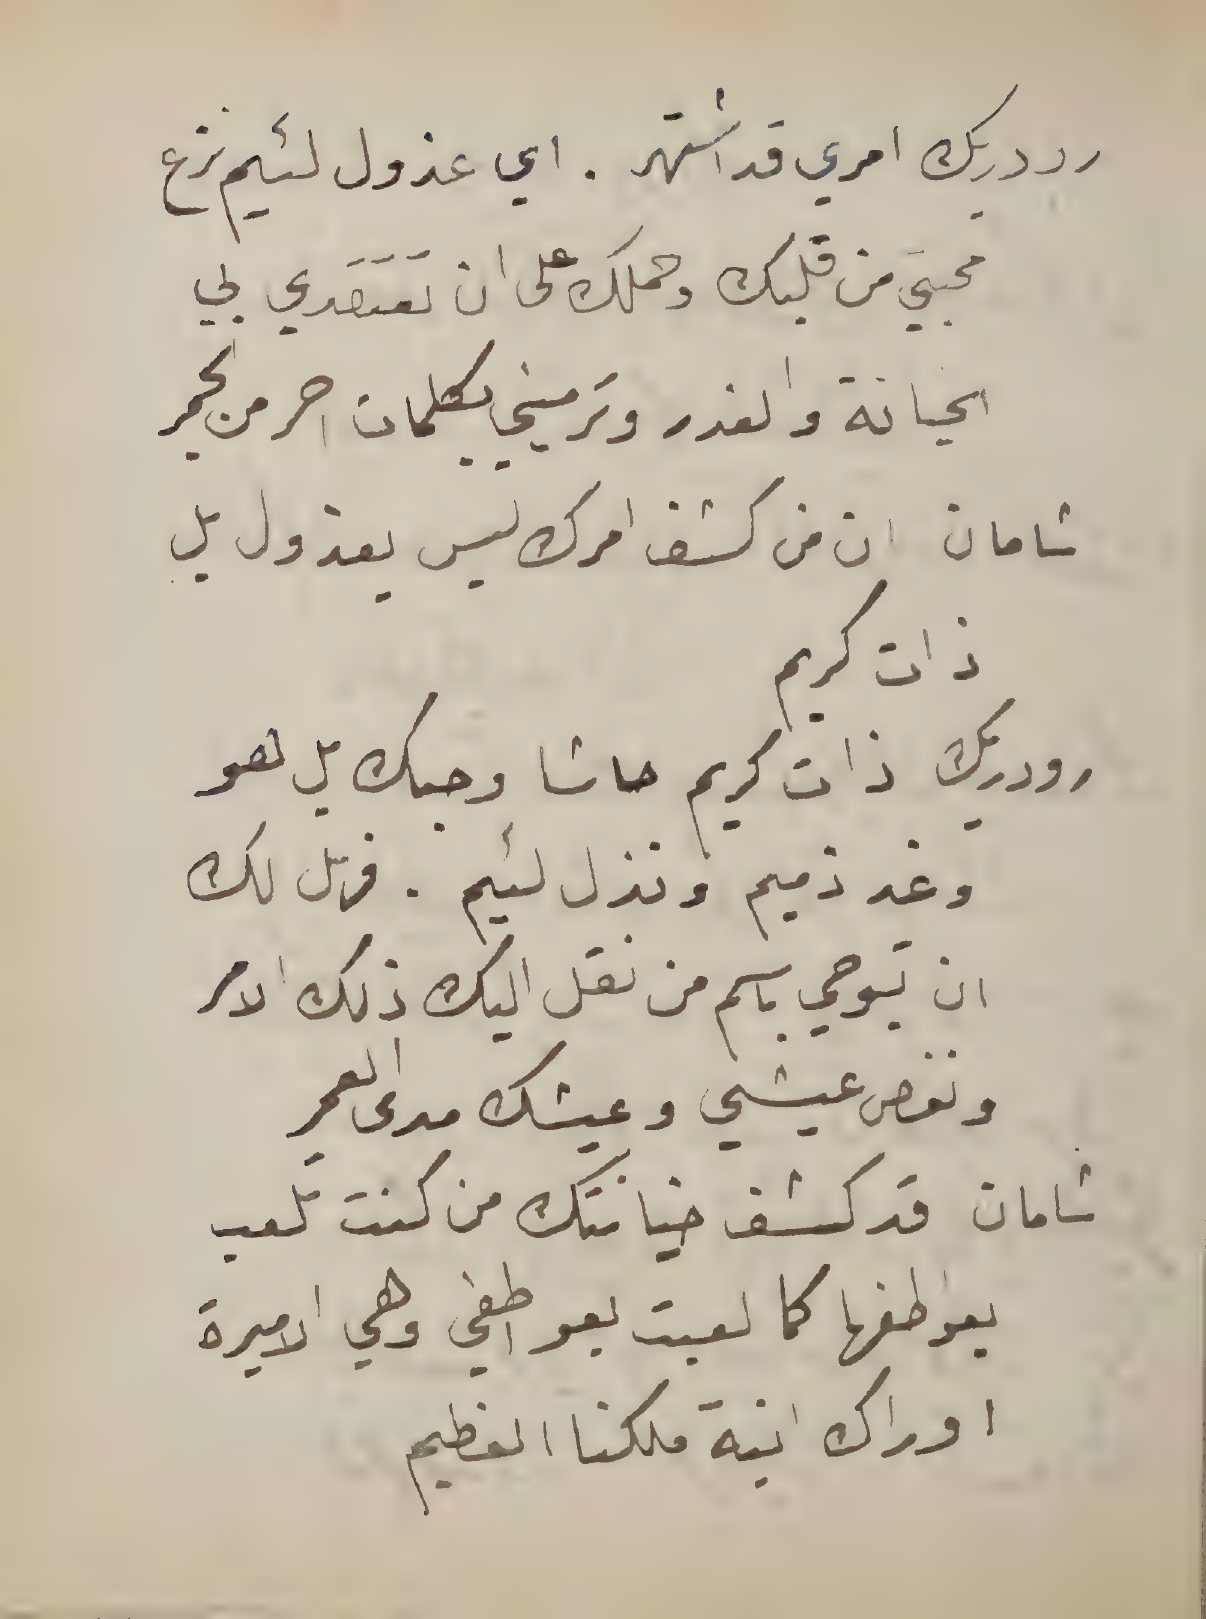 رودريك امري قد اشتهر . اي عذول لئيم نزع
محبتي من قلبك وحملك على ان تعتقدي بي
الخيانة والغدر وترميني بكلمات احر من الجمر
شامان ان من كشف امرك ليس بعذول بل
ذات كريم
رودريك ذات كريم حاشا وحبك بل هو
وغد ذميم ونذل لئيم . فهل لك
ان تبوحي باسم من نقل اليك ذلك الامر
ونغص عيشي وعيشك مدى العمر
شامان قد كشف خيانتك من كنت تلعب
بعواطفها كما لعبت بعواطفي وهي الاميرة
اوراك ابنة ملكنا العظيم